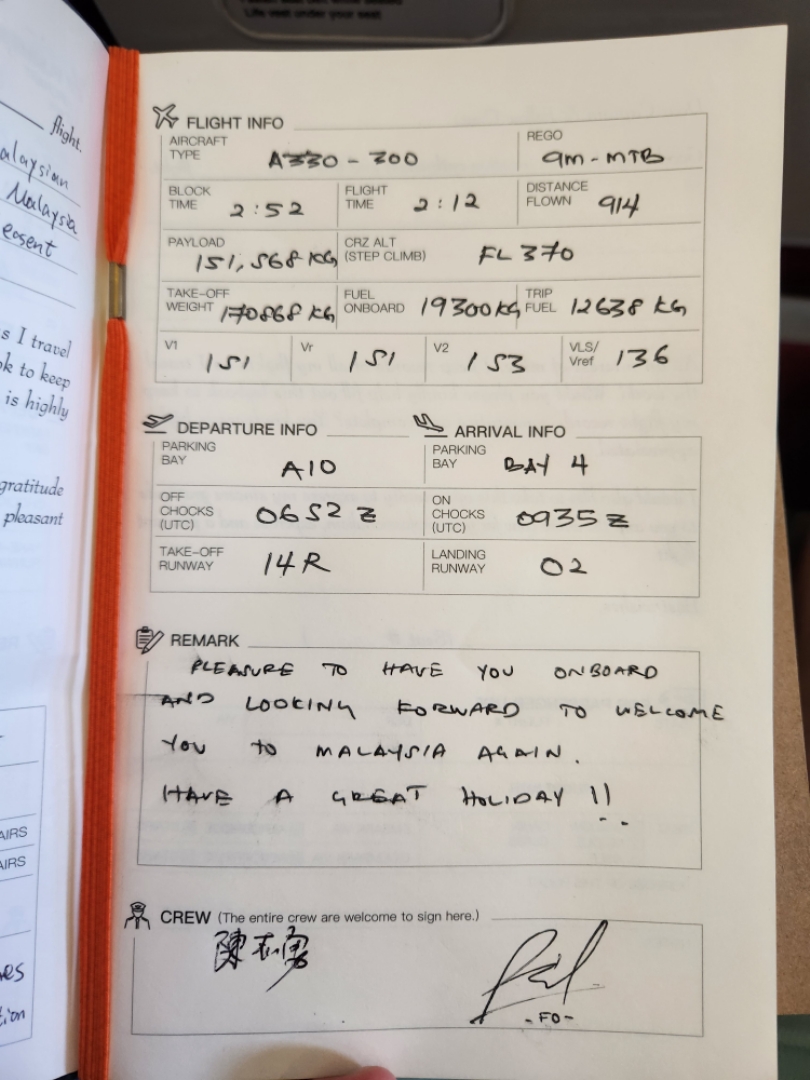 Life vest under your seat
flight.
alaysian
Malaysia
easent
s I travel
ok to keep
is highly
gratitude
pleasant
AIRS
AIRS
es
tion
FLIGHT INFO
AIRCRAFT TYPE A330-300 REGO 9M-MTB
BLOCK TIME 2:52 FLIGHT TIME 2:12 DISTANCE FLOWN 914
PAYLOAD 151,568 KG CRZ ALT (STEP CLIMB) FL 370
TAKE-OFF WEIGHT 170868 KG FUEL ONBOARD 19300KG TRIP FUEL 12638 KG
V1 151 Vr 151 V2 153 VLS/Vref 136
DEPARTURE INFO
PARKING BAY A10
OFF CHOCKS (UTC) 0652 Z
TAKE-OFF RUNWAY 14R
ARRIVAL INFO
PARKING BAY BAY 4
ON CHOCKS (UTC) 0935 Z
LANDING RUNWAY 02
REMARK
PLEASURE TO HAVE YOU ONBOARD
AND LOOKING FORWARD TO WELCOME
YOU TO MALAYSIA AGAIN.
HAVE A GREAT HOLIDAY !!
CREW (The entire crew are welcome to sign here.)
陳志勇
-FO-